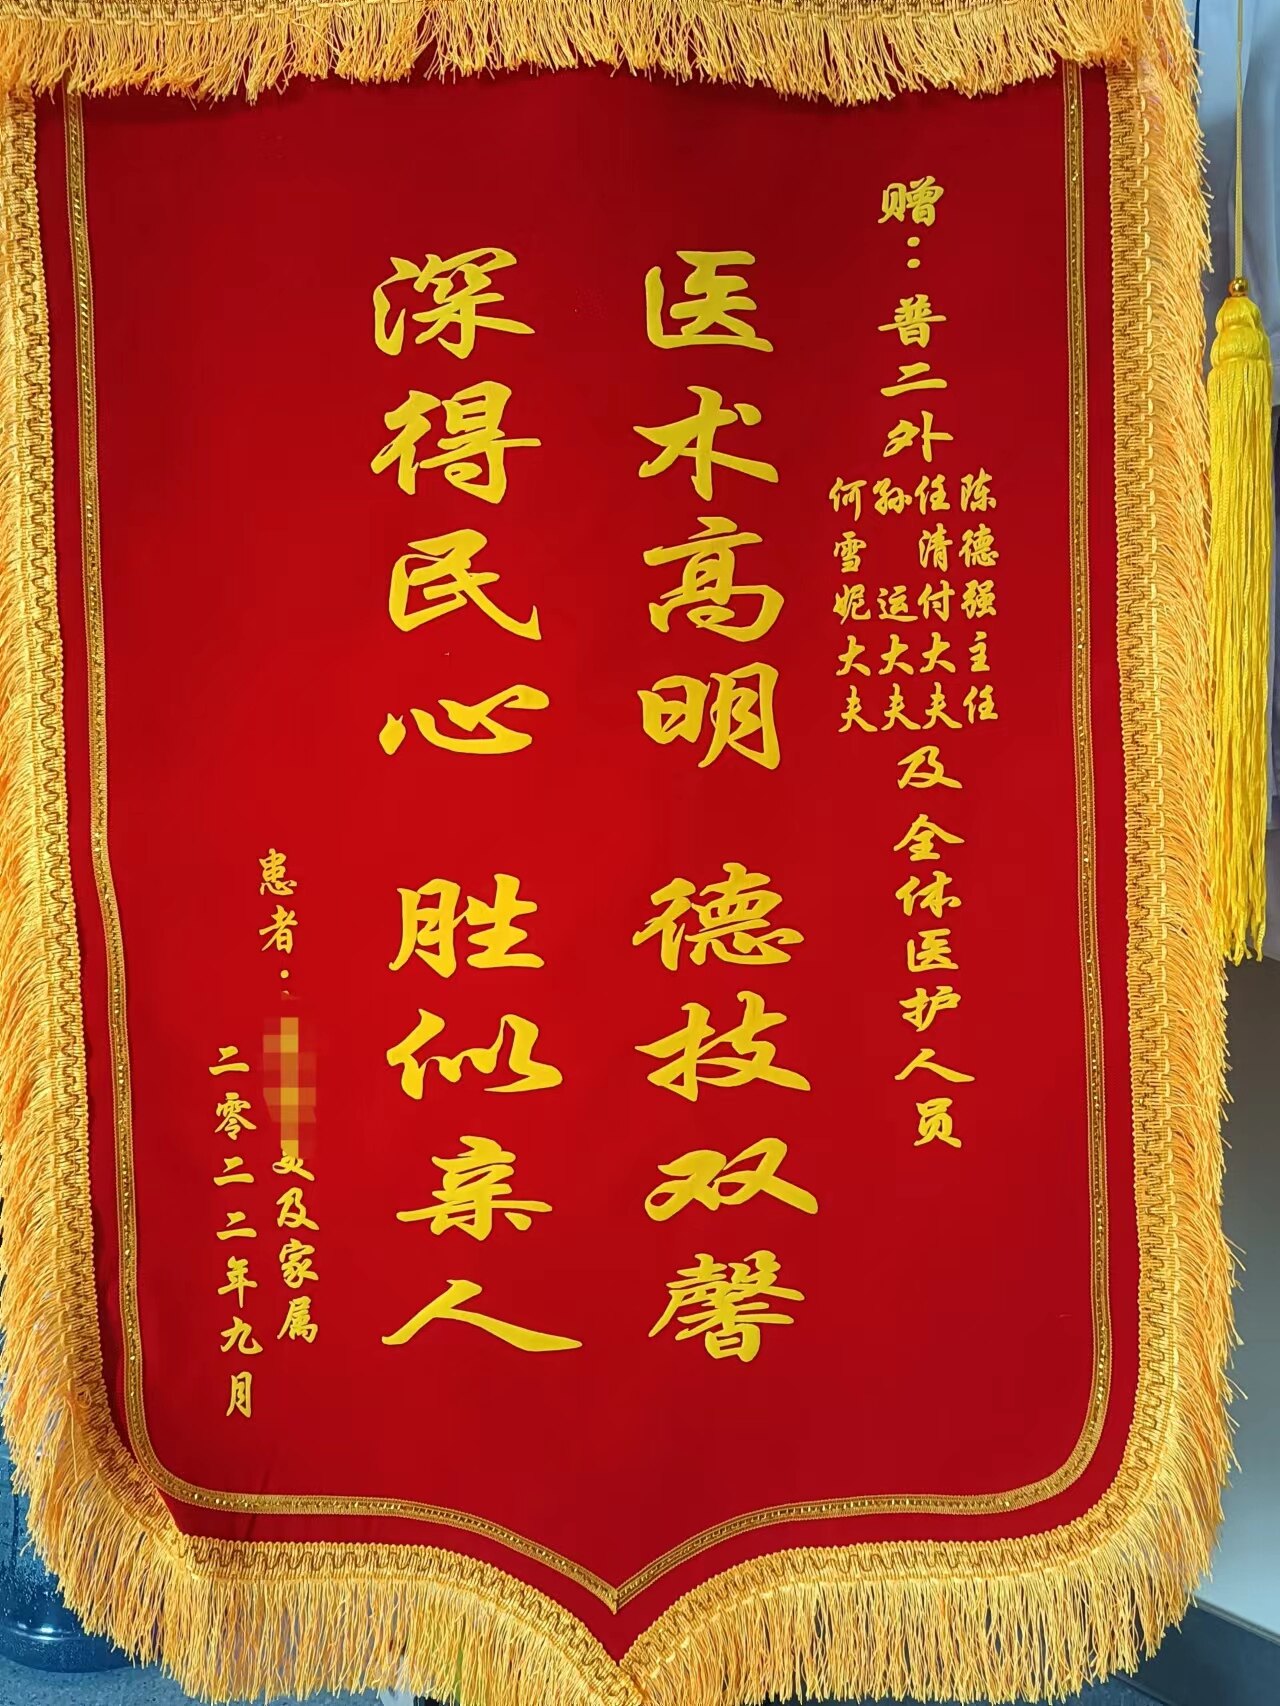 赠：普二外
陈德强主任
任清付大夫
孙运大夫
何雪妮大夫
及全体医护人员
医术高明 德技双馨
深得民心 胜似亲人
患者：
及家属
二零二二年九月